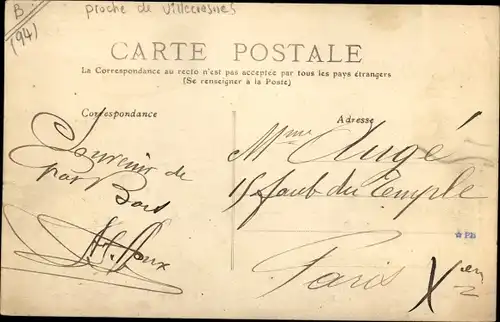 B
(94)
proche de Villecresnes
CARTE POSTALE
La Correspondance au recto n'est pas acceptée par tous les pays étrangers
(Se renseigner à la Poste)
Correspondance
Souvenir de
Adresse
Mme Augé
15 faub du Temple
Paris Xem
PB